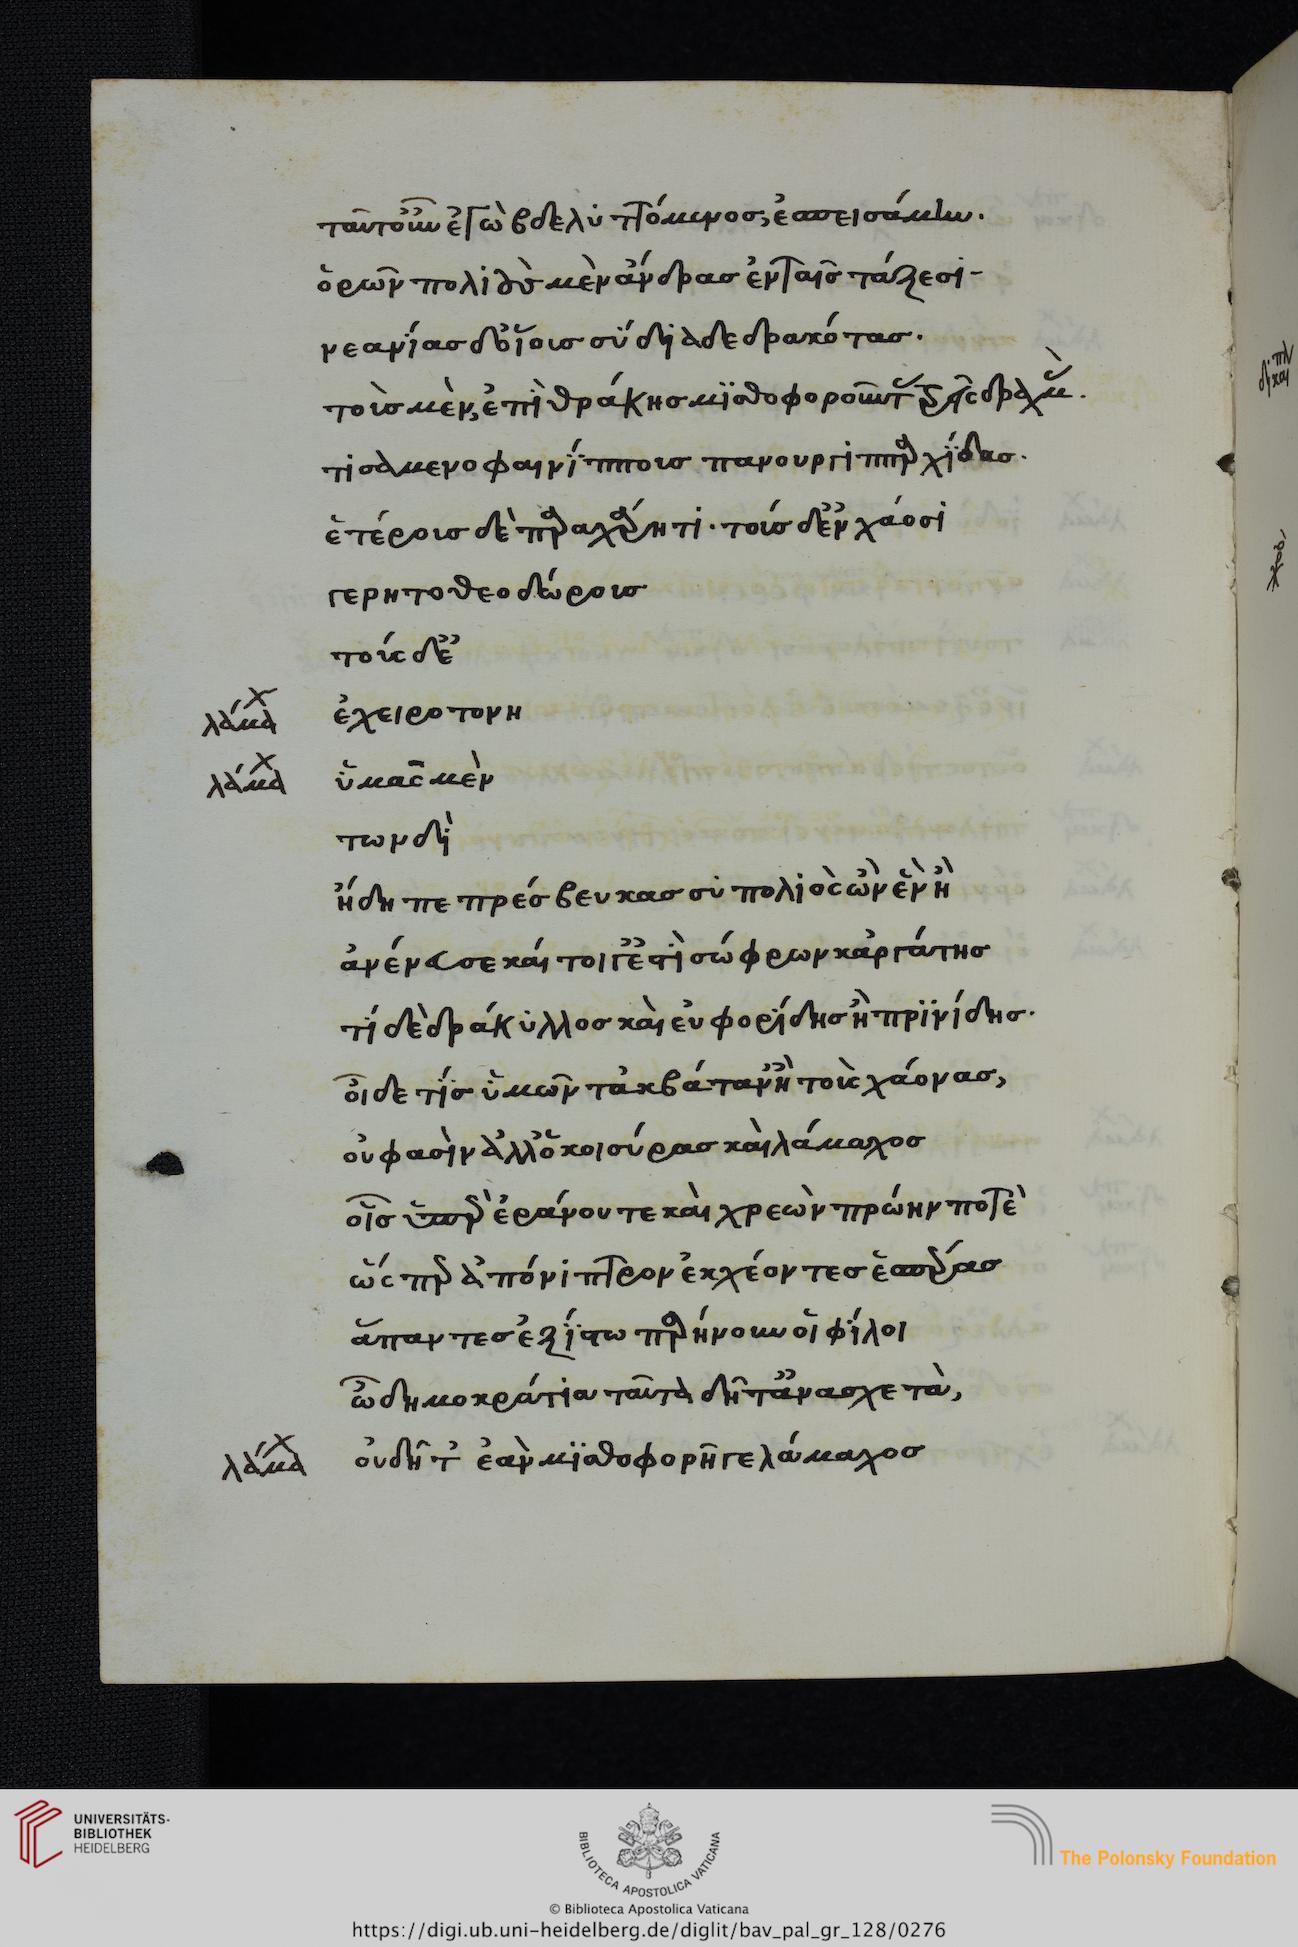 ταῦτ οὖν ἐγὼ βδελυττόμενος, ἐσπεισάμην.
ὁρῶν πολιοὺς μὲν ἄνδρας ἐν ταῖς τάξεσι-
νεανίας δ' οἵοις σὺ διαδεδρακότας.
τοὺς μὲν, ἐπὶ θράκης μισθοφοροῦντ τρεῖς δραχμ.
τισαμενοφαινίππους πανουργιππαρχίδας.
ἑτέροις δὲ παρα χάρητι. τοὺς δ' ἐν χάοσι
γερητοθεοδώροις
τοὺς δ' ἐ
λάμα χ ἐχειροτονη
λάμα χ ὑμᾶς μὲν
των δὶ
ἤδη πεπρέσβευκας σὺ πολιὸς ὢν ἓν ἢ
ἀνένευσε καί τοι γέ ἐστὶ σώφρων κἀργάτης
τί δὲ δράκυλλος καὶ εὐφορίδης ἢ πρινίδης.
οἶδε τίς ὑμῶν τἀκβάταν' ἢ τοὺς χάονας,
οὐ φασὶν ἀλλ' ὁ κοισύρας καὶ λάμαχος
οἷς ὑπὲρ ἐράνου τε καὶ χρεὼν πρώην ποτὲ
ὥς περ ἀπόνιπτρον ἐκχέοντες ἑσπέρας
ἅπαντες ἐξίστω παρήνουν οἱ φίλοι
ὦ δημοκρατία ταῦτα δῆτ' ἀνασχετὰ,
λάμα χ οὐ δῆτ' ἐὰν μισθοφορῇ γε λάμαχος
UNIVERSITÄTS-
BIBLIOTHEK
HEIDELBERG
BIBLIOTECA APOSTOLICA VATICANA
The Polonsky Foundation
© Biblioteca Apostolica Vaticana
https://digi.ub.uni-heidelberg.de/diglit/bav_pal_gr_128/0276